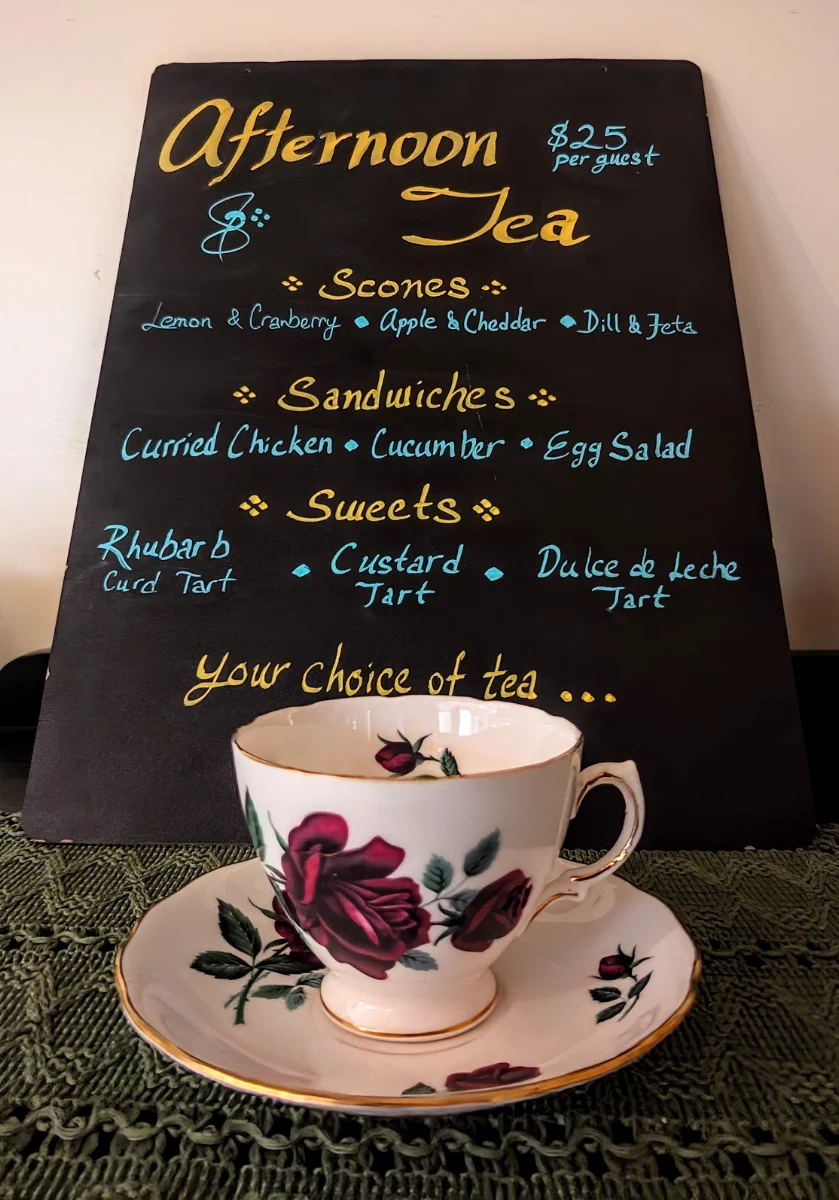 Afternoon
$25
per guest
Tea
Scones
Lemon & Cranberry • Apple & Cheddar • Dill & Feta
Sandwiches
Curried Chicken • Cucumber • Egg Salad
Sweets
Rhubarb
Curd Tart
• Custard
Tart
• Dulce de Leche
Tart
Your choice of tea ...